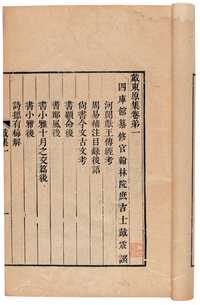 戴東原集卷第一
四庫館纂修官翰林院庶吉士戴震譔
河間獻王傳經考
周易補注目錄後語
尚書今文古文考
書顧命後
書鄭風後
書小雅十月之交篇後
書小雅後
詩摽有梅解
戴集一